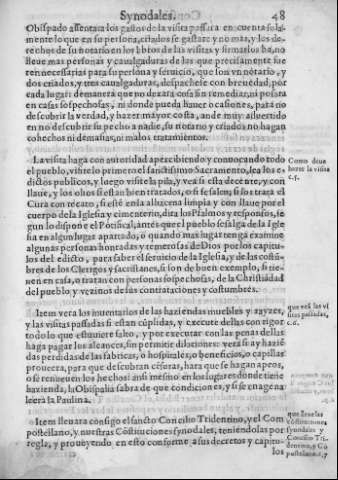 Synodales. 48
Obispado assentara los gastos de la visita passara en cuenta sola-
mente lo que en su persona, criados se gastare y no mas, y los de-
rechos de su notario en los libros de las visitas y firmarlos ha, no
lleue mas personas y caualgaduras de las que precisamente fue
ren necessarias para su persona y seruicio, que son vn notario, y
dos criados, y tres caualgaduras, despachese con breuedad, por
cada lugar: demanera que no dexara cosa sin remediar, ni posara
en casas sospechosas, ni donde pueda hauer ocasiones, para no
descubrir la verdad, y hazer mayor costa, ande muy aduertido
en no descubrir su pecho a nadie, su notario y criados no hagan
cohechos ni demasias, ni malos tratamientos.
La visita haga con autoridad apercibiendo y conuocando todo
el pueblo, visite lo primero el sanctissimo Sacramento, lea los e-
dictos publicos, y luego visite la pila, y vea si esta decente, y con
llaue, y los olios si estan bien tratados, o si se salen, si los trata el
Cura con recato, si esté en la alhazena limpia y con llaue por el
cuerpo de la Iglesia y cimenterio, dira los Psalmos y responsos, se
gun lo dispone el Pótifical, antes que el pueblo se salga de la Igle
sia en algun lugar apartado, o quando mas lugar tenga examine
algunas personas hontadas y temerosas de Dios por los capitu-
los del edicto, para saber el seruicio de la Iglesia, y de las costú-
bres de los Clerigos y sacristanes, si son de buen exemplo, si tie-
nen en casa, o tratan con personas sospechosas, de la Christiãdad
del pueblo y vezinos de sus contrataciones y costumbres.
Como deue
hazer la visita
c. 5.
Item vera los inuentarios de las haziendas muebles y rayzes,
y las visitas passadas si estan cúplidas, y execute dellas con rigor
todo lo que estuuiere falto, y por executar con las penas dellas
haga pagar los alcances, sin permitir dilaciones: vera si ay hazié
das perdidas de las fabricas, o hospitales, o beneficios, o capillas
prouerra, para que de sobran céseras, hara que se hagan apeos,
o se renueuen los hechos: ansi mesmo en los lugares donde tiene
hazienda, la Obispalia sabra de que condicion es, y si se enagena
leerá la Paulina.
que verá las vi
sitas passadas,
c. 6.
Item lleuara consigo el sancto Concilio Tridentino, y el Com
postellano, y nuestras Cóstituciones synodales, teniendolas por
regla, y proueyendo en esto conforme a sus decretos y capitu-
los
que lleue las
cóstituciones
synodales y
Concilio Tri-
dentino, y Có
postellano. c. 7